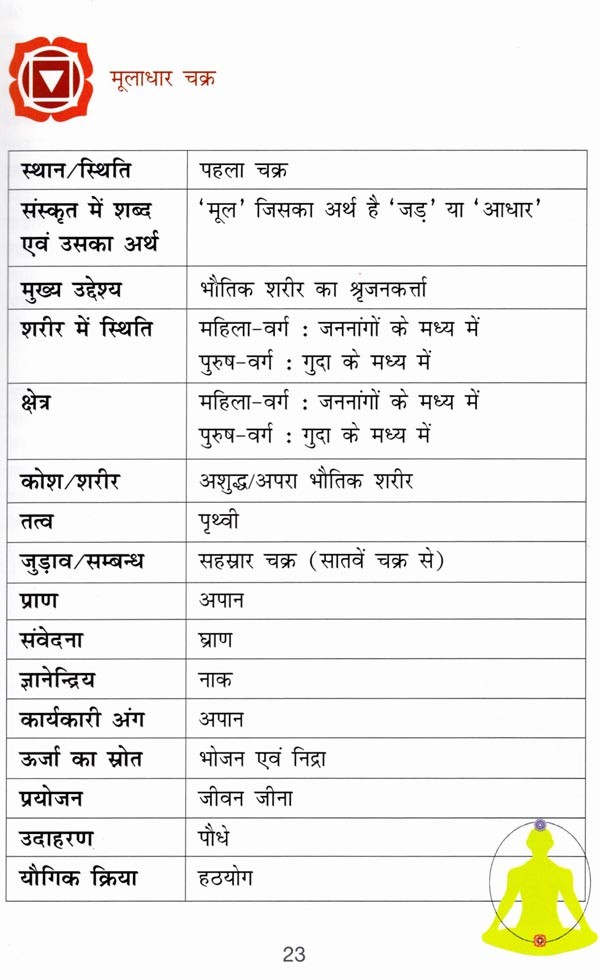 मूलाधार चक्र
स्थान/स्थिति पहला चक्र
संस्कृत में शब्द ‘मूल’ जिसका अर्थ है ‘जड़’ या ‘आधार’
एवं उसका अर्थ
मुख्य उद्देश्य भौतिक शरीर का श्रृजनकर्त्ता
शरीर में स्थिति महिला-वर्ग : जननांगों के मध्य में
पुरुष-वर्ग : गुदा के मध्य में
क्षेत्र महिला-वर्ग : जननांगों के मध्य में
पुरुष-वर्ग : गुदा के मध्य में
कोश/शरीर अशुद्ध/अपरा भौतिक शरीर
तत्व पृथ्वी
जुड़ाव/सम्बन्ध सहस्रार चक्र (सातवें चक्र से)
प्राण अपान
संवेदना घ्राण
ज्ञानेन्द्रिय नाक
कार्यकारी अंग अपान
ऊर्जा का स्रोत भोजन एवं निद्रा
प्रयोजन जीवन जीना
उदाहरण पौधे
यौगिक क्रिया हठयोग
23